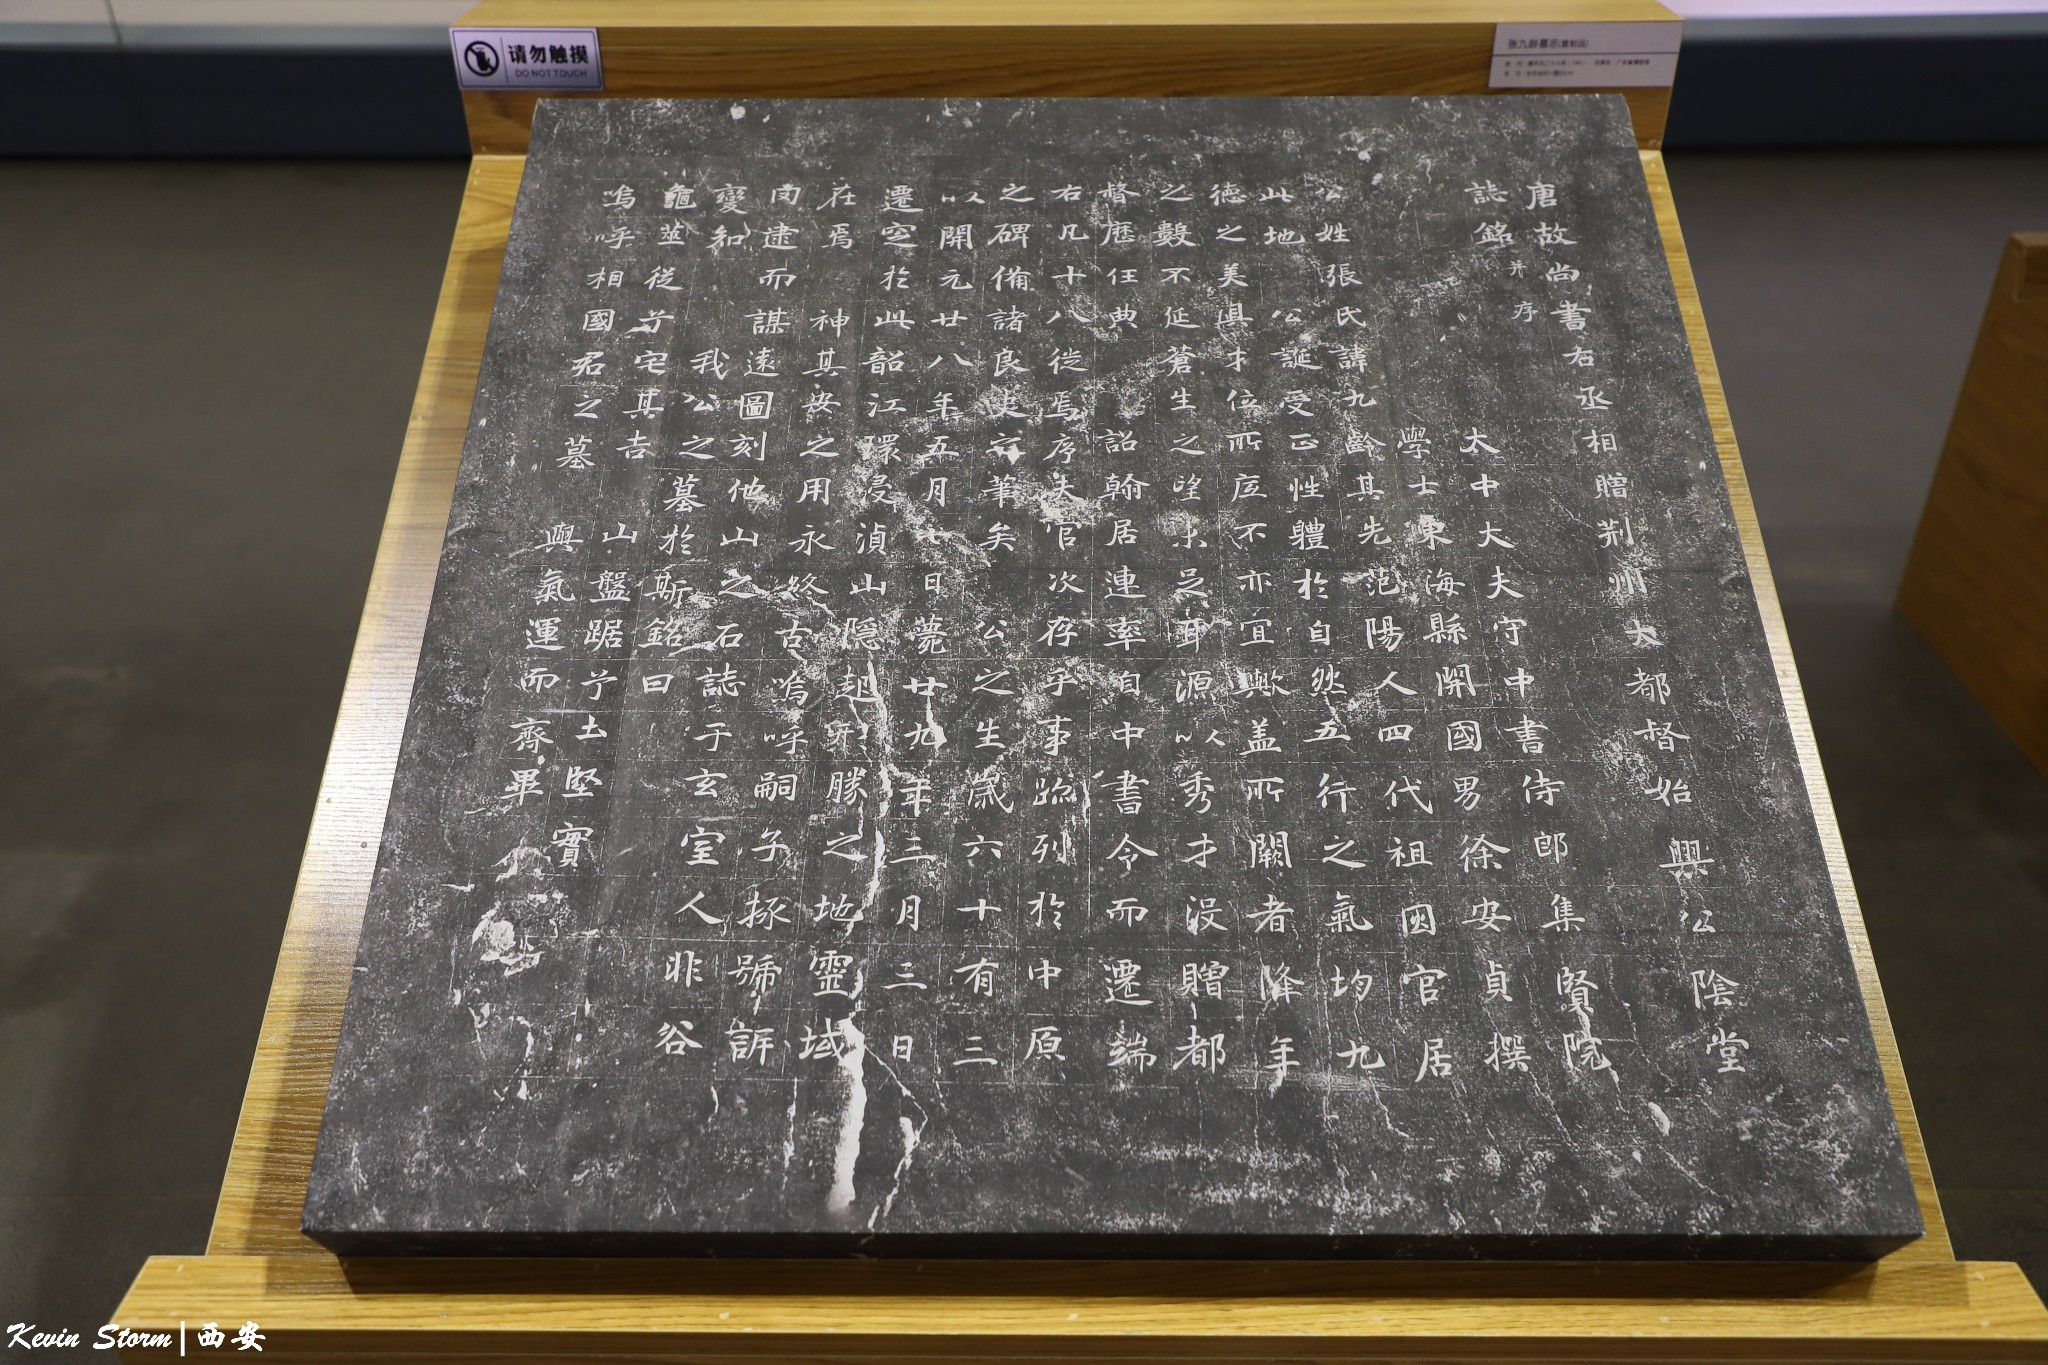 请勿触摸
DO NOT TOUCH
张九龄墓志(复制品)
唐故尚書右丞相贈荆州大都督始興公陰堂
誌銘并序
太中大夫守中書侍郎集賢院
學士東海縣開國男徐安貞撰
公姓張氏諱九齡其先范陽人四代祖因官居
此地公誕受正性體於自然五行之氣均九
德之美具才位所底不亦宜歟盖所闕者降年
之數不延蒼生之望未足耳源以秀才没贈都
督歷任典誥翰居連率自中書令而遷端
右凡十八徙焉序夫官次存乎事跡列於中原
之碑備諸良史之筆矣公之生歲六十有三
以開元廿八年五月七日薨廿九年三月三日
遷窆於此韶江環浸湞山隱起形勝之地靈域
在焉神其安之用永終古嗚呼嗣子拯號訴
罔逮而謀遠圖刻他山之石誌于玄室人非谷
變知我公之墓於斯銘曰
龜筮從兮宅其吉山盤踞兮土堅實
嗚呼相國君之墓與氣運而齊畢
Kevin Storm | 西安